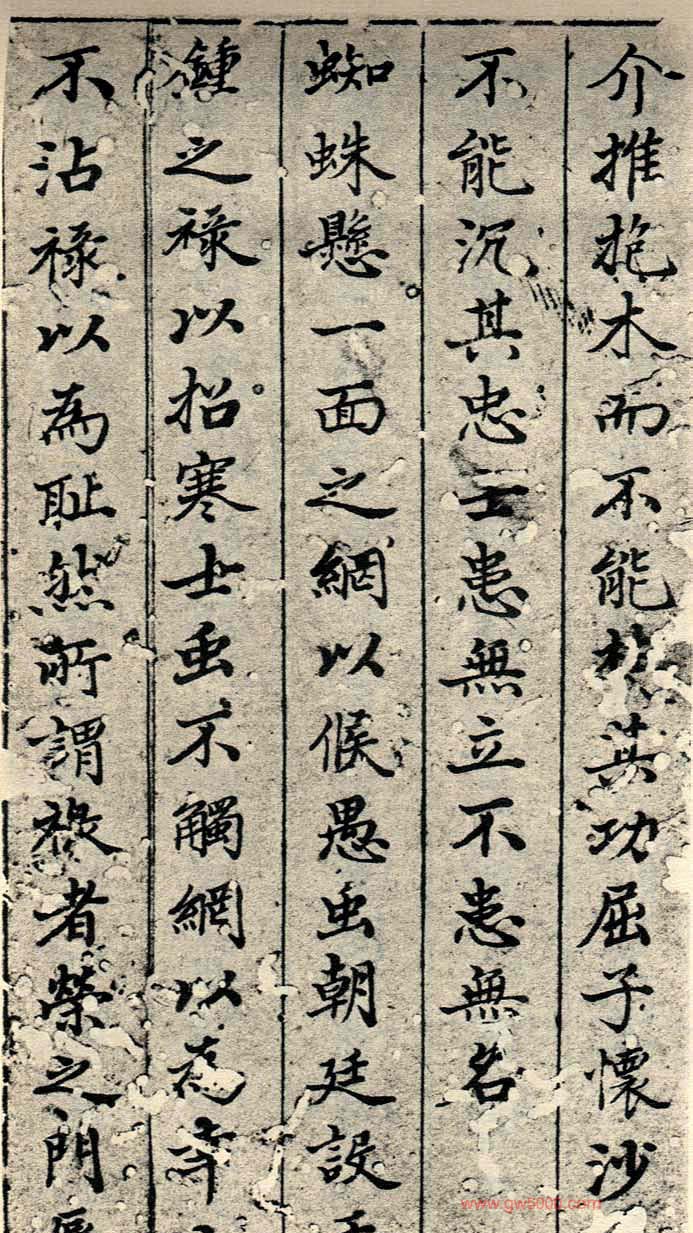 介推抱木而不能棄其功屈子懷沙
不能沉其忠士患無立不患無名
蜘蛛懸一面之網以候愚虫朝廷設
鍾之祿以招寒士虫不觸網以為幸
不沾祿以為耻然所謂祿者榮之門
www.gw5000.com